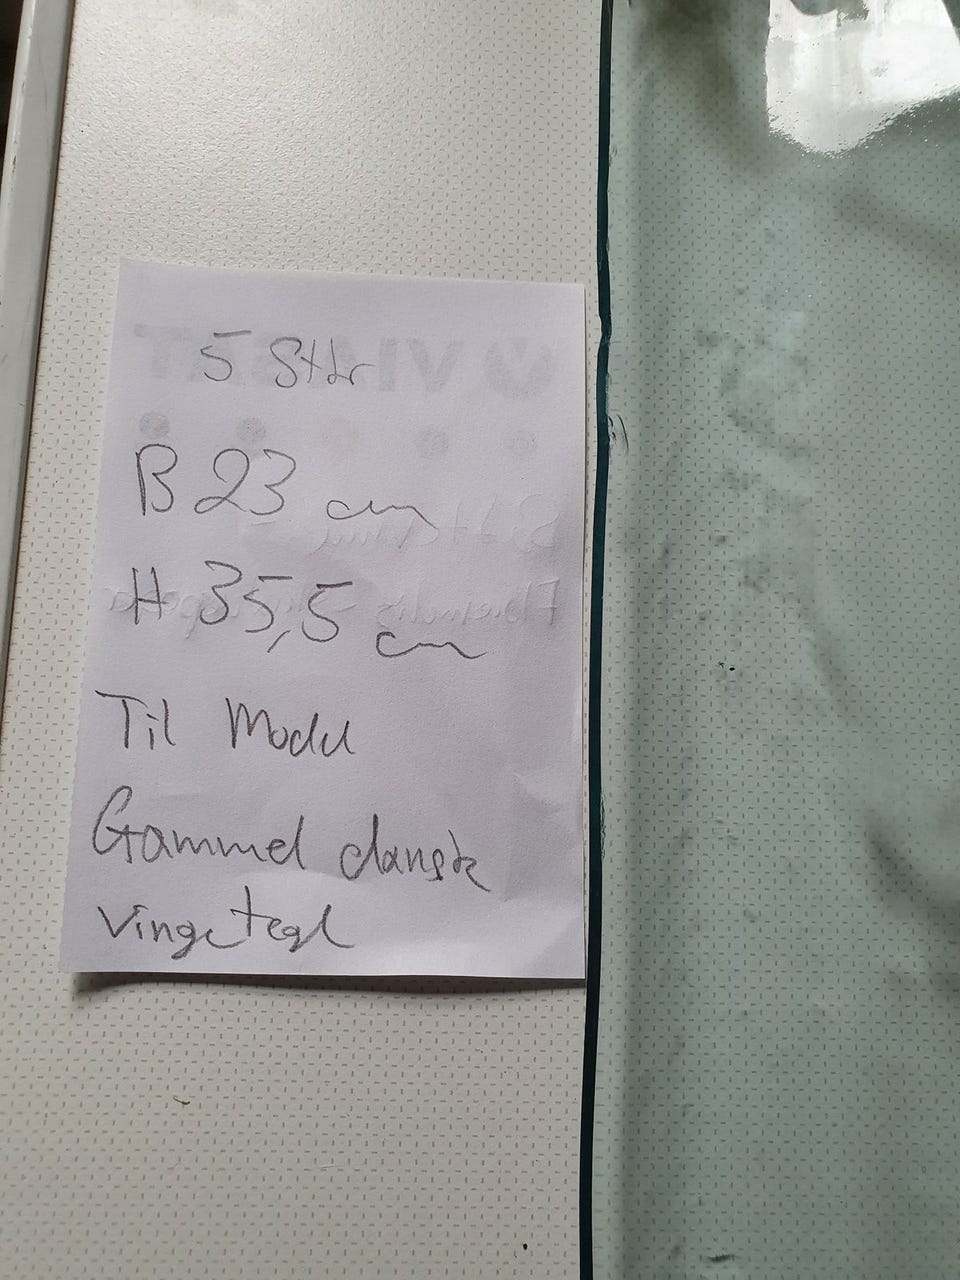 5 Stk
B 23 cm
H 35,5 cm
Til Model
Gammel dansk
vingetegl